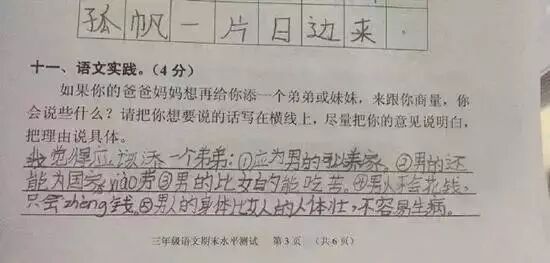 孤帆一片日边来.
十一、语文实践。(4分)
如果你的爸爸妈妈想再给你添一个弟弟或妹妹，来跟你商量，你
会说些什么？请把你想要说的话写在横线上，尽量把你的意见说明白，
把理由说具体。
我觉得应该添一个弟弟:①应为男的可以养家。②男的还
能为国家xiào劳③男的比女的能吃苦。④男人不会花钱,
只会zhèng钱。⑤男人的身体比女人的人体壮,不容易生病。
三年级语文期末水平测试 第3页 (共6页)